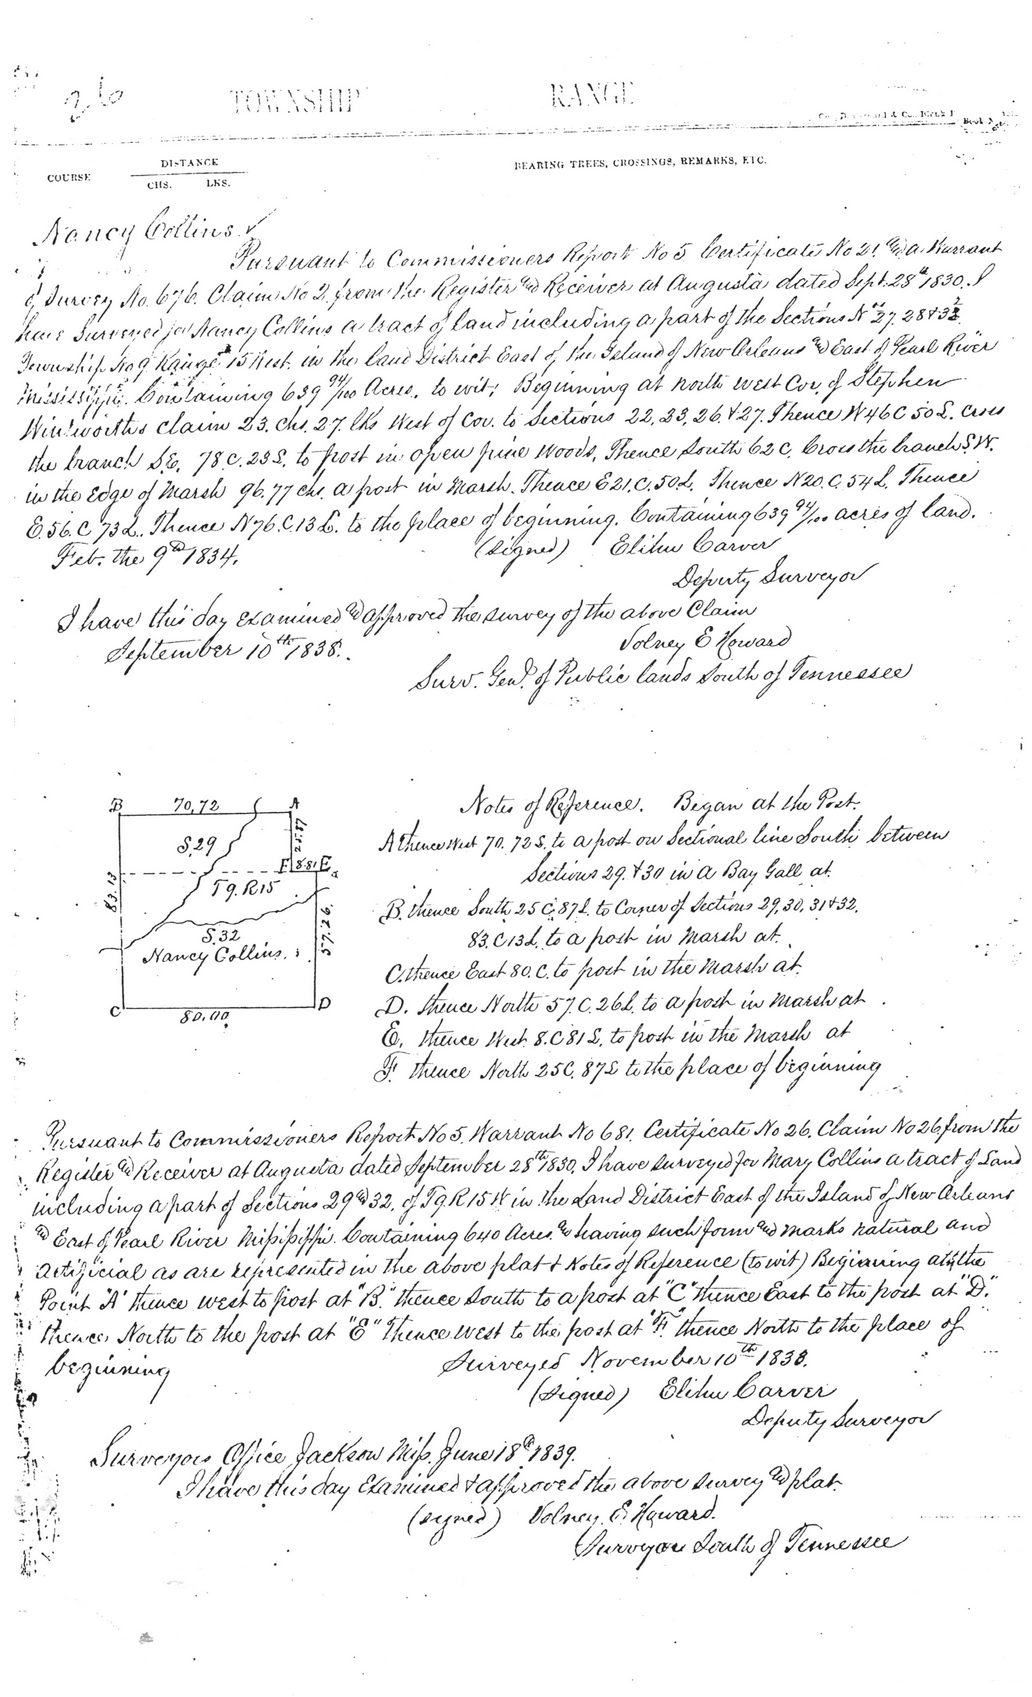 TOWNSHIP RANGE
COURSE
DISTANCE
CHS. LKS.
BEARING TREES, CROSSINGS, REMARKS, ETC.
Nancy Collins
Pursuant to Commissioners Report No 5 Certificate No 21 and a Warrant
of Survey No. 676. Claim No 2. from the Register and Receiver at Augusta dated Sept. 28th 1830. I
have Surveyed for Nancy Collins a tract of land including a part of the Sections Nos 27. 28 & 33.
Township No 9 Range 15 West. in the land District East of the Island of New Orleans and East of Pearl River
Mississippi. Containing 639 94/100 Acres, to wit; Beginning at north west Cor. of Stephen
Wintworths claim 23. chs. 27. lks West of Cor. to Sections 22, 23, 26. & 27. Thence W 46 C 50 L. cross
the branch S.E. 78. C. 23 L. to post in open pine woods. Thence South 62 C. Cross the branch S.W.
in the Edge of Marsh 96.77 chs. a post in Marsh. Thence E 21. C. 50 L. Thence N 20. C. 54 L. Thence
E. 56. C 73 L. Thence N 76. C. 13 L. to the place of beginning. Containing 639 94/100 acres of land.
Feb. the 9th 1834. (signed) Elihu Carver
Deputy Surveyor
I have this day examined and approved the survey of the above Claim
September 10th 1838. Volney E Howard
Surv. Genl. of Public lands South of Tennessee
B 70,72 A
S.29
25.87
F 8.81 E
T9. R15
83.13
S.32
57.26
Nancy Collins.
C 80.00 D
Notes of Reference. Began at the Post.
A thence West 70. 72 L. to a post on Sectional line South between
Sections 29. & 30 in a Bay Gall at
B. thence South 25 C. 87 L. to Corner of Sections 29, 30, 31 & 32.
83. C 13 L. to a post in Marsh at.
C. thence East 80. C. to post in the Marsh at.
D. thence North 57. C. 26 L. to a post in Marsh at
E. thence West 8. C 81 L. to post in the Marsh at
F. thence North 25 C. 87 L to the place of beginning
Pursuant to Commissioners Report No 5. Warrant No 681. Certificate No 26. Claim No 26 from the
Register and Receiver at Augusta dated September 28th 1830, I have surveyed for Mary Collins a tract of Land
including a part of Sections 29 and 32, of T9. R 15 W in the Land District East of the Island of New Orleans
and East of Pearl River Missisippi. Containing 640 Acres and having such form and marks natural and
artificial as are represented in the above plat & Notes of Reference (to wit) Beginning at the
Point "A" thence west to post at "B." thence South to a post at "C" thence East to the post at "D."
thence North to the post at "E" thence west to the post at "F." thence North to the place of
beginning Surveyed November 10th 1838.
(signed) Elihu Carver
Deputy Surveyor
Surveyors Office Jackson Miss. June 18th 1839.
I have this day Examined & approved the above survey and plat.
(signed) Volney. E. Howard.
Surveyor South of Tennessee